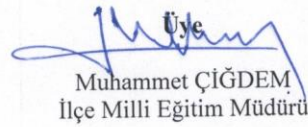 Üye
Muhammet ÇİĞDEM
İlçe Milli Eğitim Müdürü